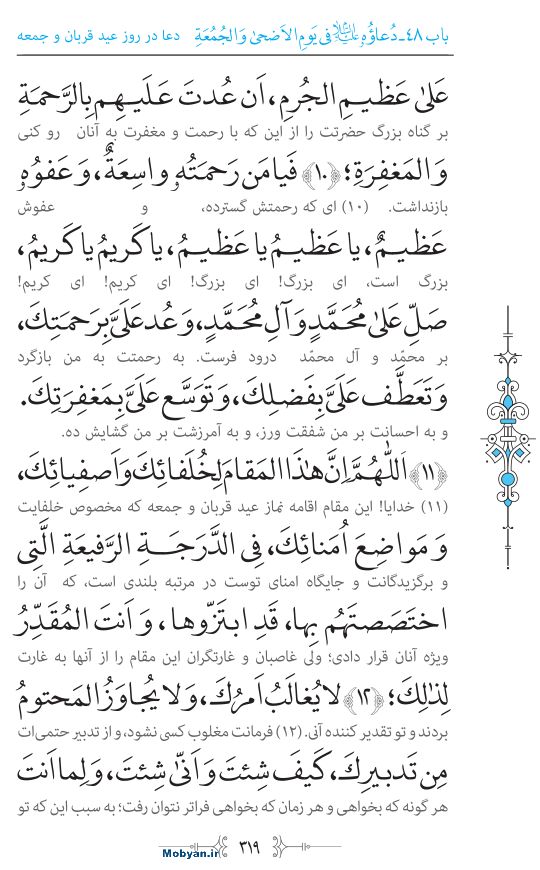 باب ۴۸ـ دُعاؤُهُ عليه السلام فی یَومِ الاَضحیٰ وَ الجُمُعَةِ دعا در روز عید قربان و جمعه
عَلیٰ عَظیمِ الجُرمِ، اَن عُدتَ عَلَیهِم بِالرَّحمَةِ
بر گناه بزرگ حضرتت را از این که با رحمت و مغفرت به آنان رو کنی
وَ المَغفِرَةِ؛ ﴿۱۰﴾ فَیا مَن رَحمَتُهُ واسِعَةٌ، وَ عَفوُهُ
بازنداشت. (۱۰) ای که رحمتش گسترده، و عفوش
عَظیمٌ، یا عَظیمُ یا عَظیمُ، یا کَریمُ یا کَریمُ،
بزرگ است، ای بزرگ! ای بزرگ! ای کریم! ای کریم!
صَلِّ عَلیٰ مُحَمَّدٍ وَ آلِ مُحَمَّدٍ، وَ عُد عَلَیَّ بِرَحمَتِكَ،
بر محمّد و آل محمّد درود فرست. به رحمتت به من بازگرد
وَ تَعَطَّف عَلَیَّ بِفَضلِكَ، وَ تَوَسَّع عَلَیَّ بِمَغفِرَتِكَ.
و به احسانت بر من شفقت ورز، و به آمرزشت بر من گشایش ده.
﴿۱۱﴾ اَللّٰهُمَّ اِنَّ هٰذَا المَقامَ لِخُلَفائِكَ وَ اَصفِیائِكَ،
(۱۱) خدایا! این مقام اقامه نماز عید قربان و جمعه که مخصوص خلفایت
وَ مَواضِعَ اُمَنائِكَ، فِی الدَّرَجَةِ الرَّفیعَةِ الَّتِی
و برگزیدگانت و جایگاه امنای توست در مرتبه بلندی است، که آن را
اختَصَصتَهُم بِها، قَدِ ابتَزّوها، وَ اَنتَ المُقَدِّرُ
ویژه آنان قرار دادی؛ ولی غاصبان و غارتگران این مقام را از آنها به غارت
لِذٰلِكَ؛ ﴿۱۲﴾ لا یُغالَبُ اَمرُكَ، وَ لا یُجاوَزُ المَحتومُ
بردند و تو تقدیر کننده آنی. (۱۲) فرمانت مغلوب کسی نشود، و از تدبیر حتمی‌ات
مِن تَدبیرِكَ، کَیفَ شِئتَ وَ اَنّیٰ شِئتَ، وَ لِما اَنتَ
هر گونه که بخواهی و هر زمان که بخواهی فراتر نتوان رفت؛ به سبب این که تو
۳۱۹
Mobyan.ir